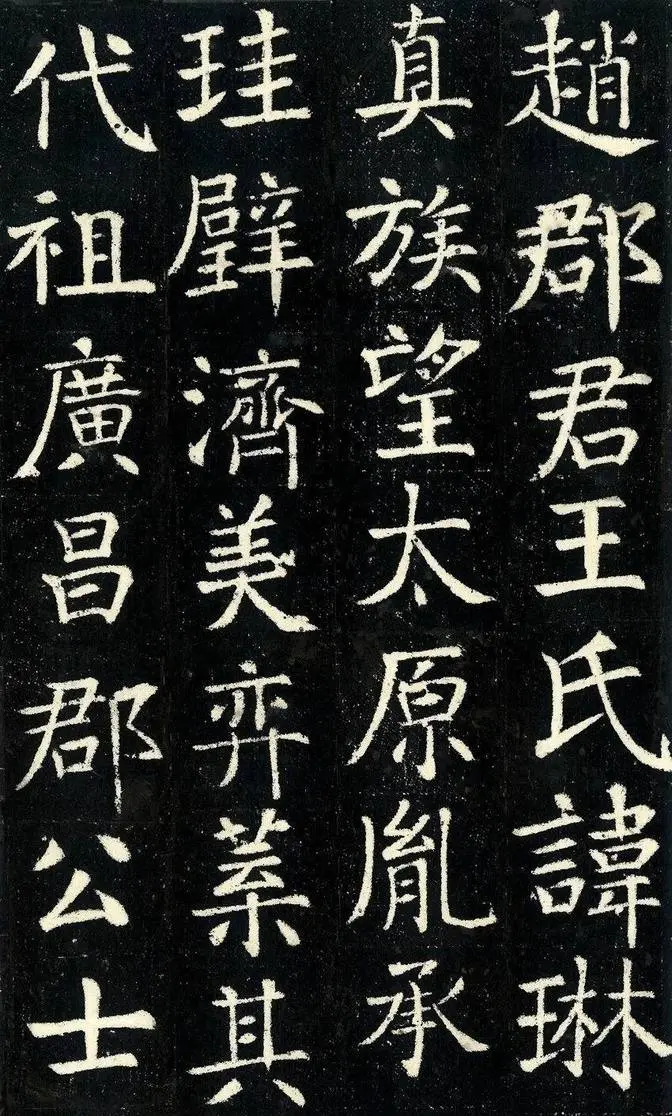 趙郡君王氏諱琳
真族望太原胤承
珪璧濟美弈葉其
代祖廣昌郡公士